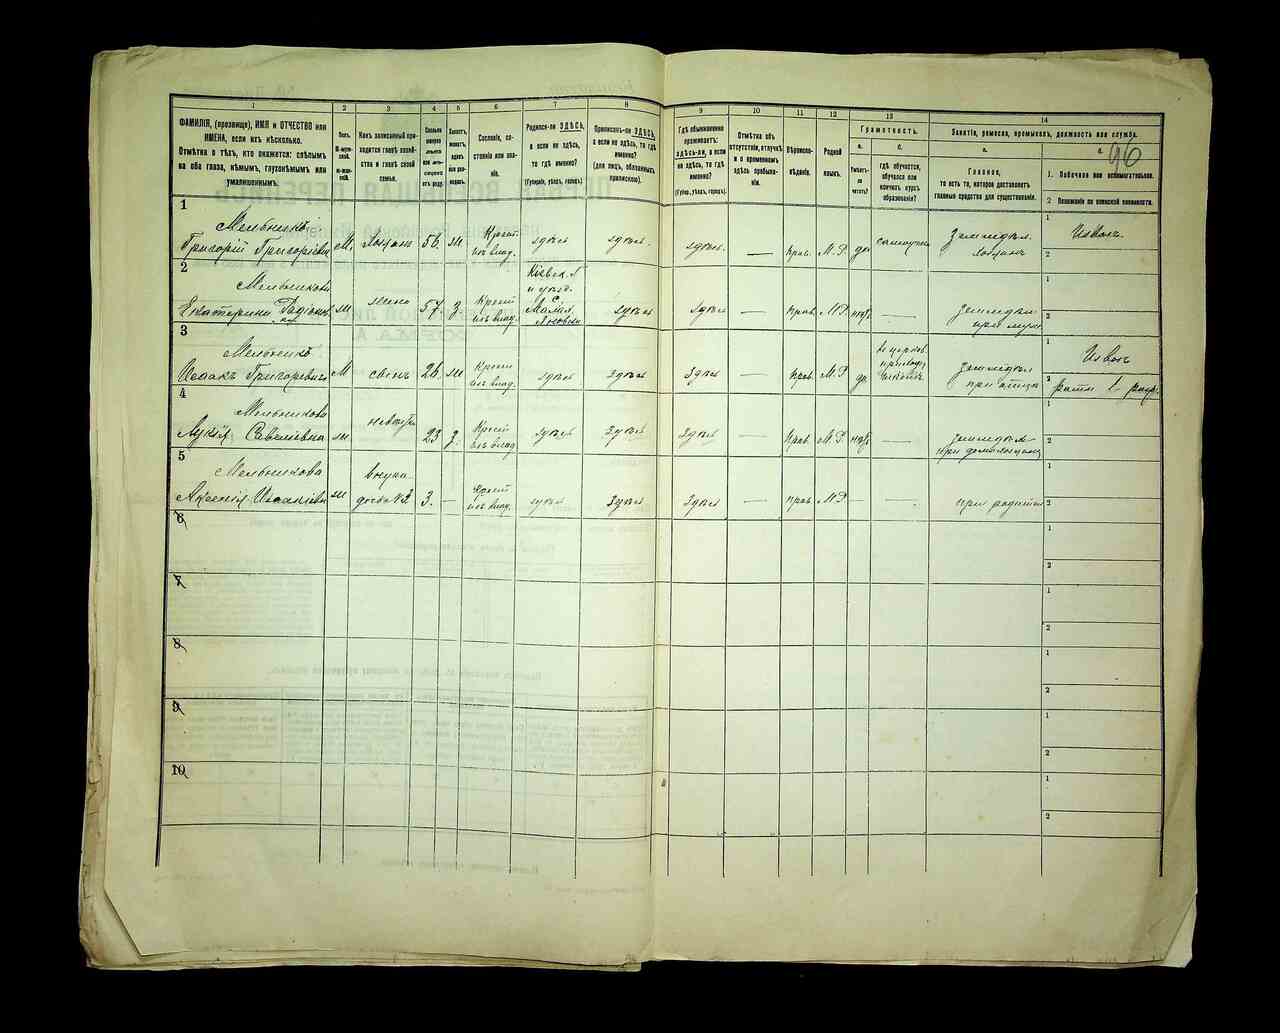 96
1
2
3
4
5
6
7
8
9
10
11
12
13
14
ФАМИЛІЯ, (прозвище), ИМЯ и ОТЧЕСТВО или
ИМЕНА, если ихъ нѣсколько.
Отмѣтка о тѣхъ, кто окажется: слѣпымъ
на оба глаза, нѣмымъ, глухонѣмымъ или
умалишеннымъ.
Полъ.
М-мужской.
Ж-женскій.
Какъ записанный приходится
главѣ хозяйства и главѣ своей
семьи.
Холостъ,
женатъ,
вдовъ
или разведенъ.
Сословіе, состояніе
или званіе.
Родился-ли ЗДѢСЬ,
а если не здѣсь,
то гдѣ именно?
(Губернія, уѣздъ, городъ).
Приписанъ-ли ЗДѢСЬ,
а если не здѣсь, то гдѣ
именно?
(для лицъ, обязанныхъ
припискою).
Гдѣ обыкновенно
проживаетъ:
здѣсь-ли, а если
не здѣсь, то гдѣ
именно?
(Губер., уѣздъ, городъ).
Отмѣтка объ
отсутствіи, отлучкѣ
и о временномъ
здѣсь пребываніи.
Вѣроисповѣданіе.
Родной
языкъ.
Грамотность.
а.
Умѣетъ-ли
читать?
б.
гдѣ обучается,
обучался или
кончилъ курсъ
образованія?
Занятіе, ремесло, промыселъ, должность или служба.
а.
Главное,
то есть то, которое доставляетъ
главныя средства для существованія.
б.
1. Побочное или вспомогательное.
2. Положеніе по воинской повинности.
1
Мельникъ
Григорій Григоріевъ М. 56. ж. Крест. изъ влад. здѣсь здѣсь. здѣсь. — Прав. М.Р. да самоучка Земледѣл. Извозъ.
2
Мельникова
Екатерина ж жена 57. з. Крест изъ влад. здѣсь здѣсь — Прав М.Р. — Земледѣл. при мужѣ
3
Мельникъ
Исаакъ Григоревичъ М сынъ 26. ж Крест изъ влад. здѣсь здѣсь здѣсь — Прав. М.Р. да земледѣл при отцѣ Извозъ
ратн 1 разр.
4
Мельникова
Лукія Савеліевна ж. невѣстка 23 з. Крест изъ влад здѣсь здѣсь здѣсь — Прав. М.Р. — земледѣл.
5
Мельникова
ж внучка дочь № 3 3. — Крест изъ влад. здѣсь здѣсь здѣсь — прав М.Р. — при родител
6
7
8
9
10